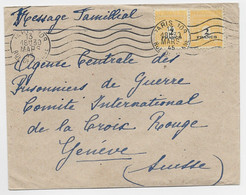 Message Familial
PARIS 109
18H30
MARS
45
2
FRANCS
Agence Centrale des
Prisonniers de Guerre
Comité International
de la Croix Rouge
Genève
(Suisse)